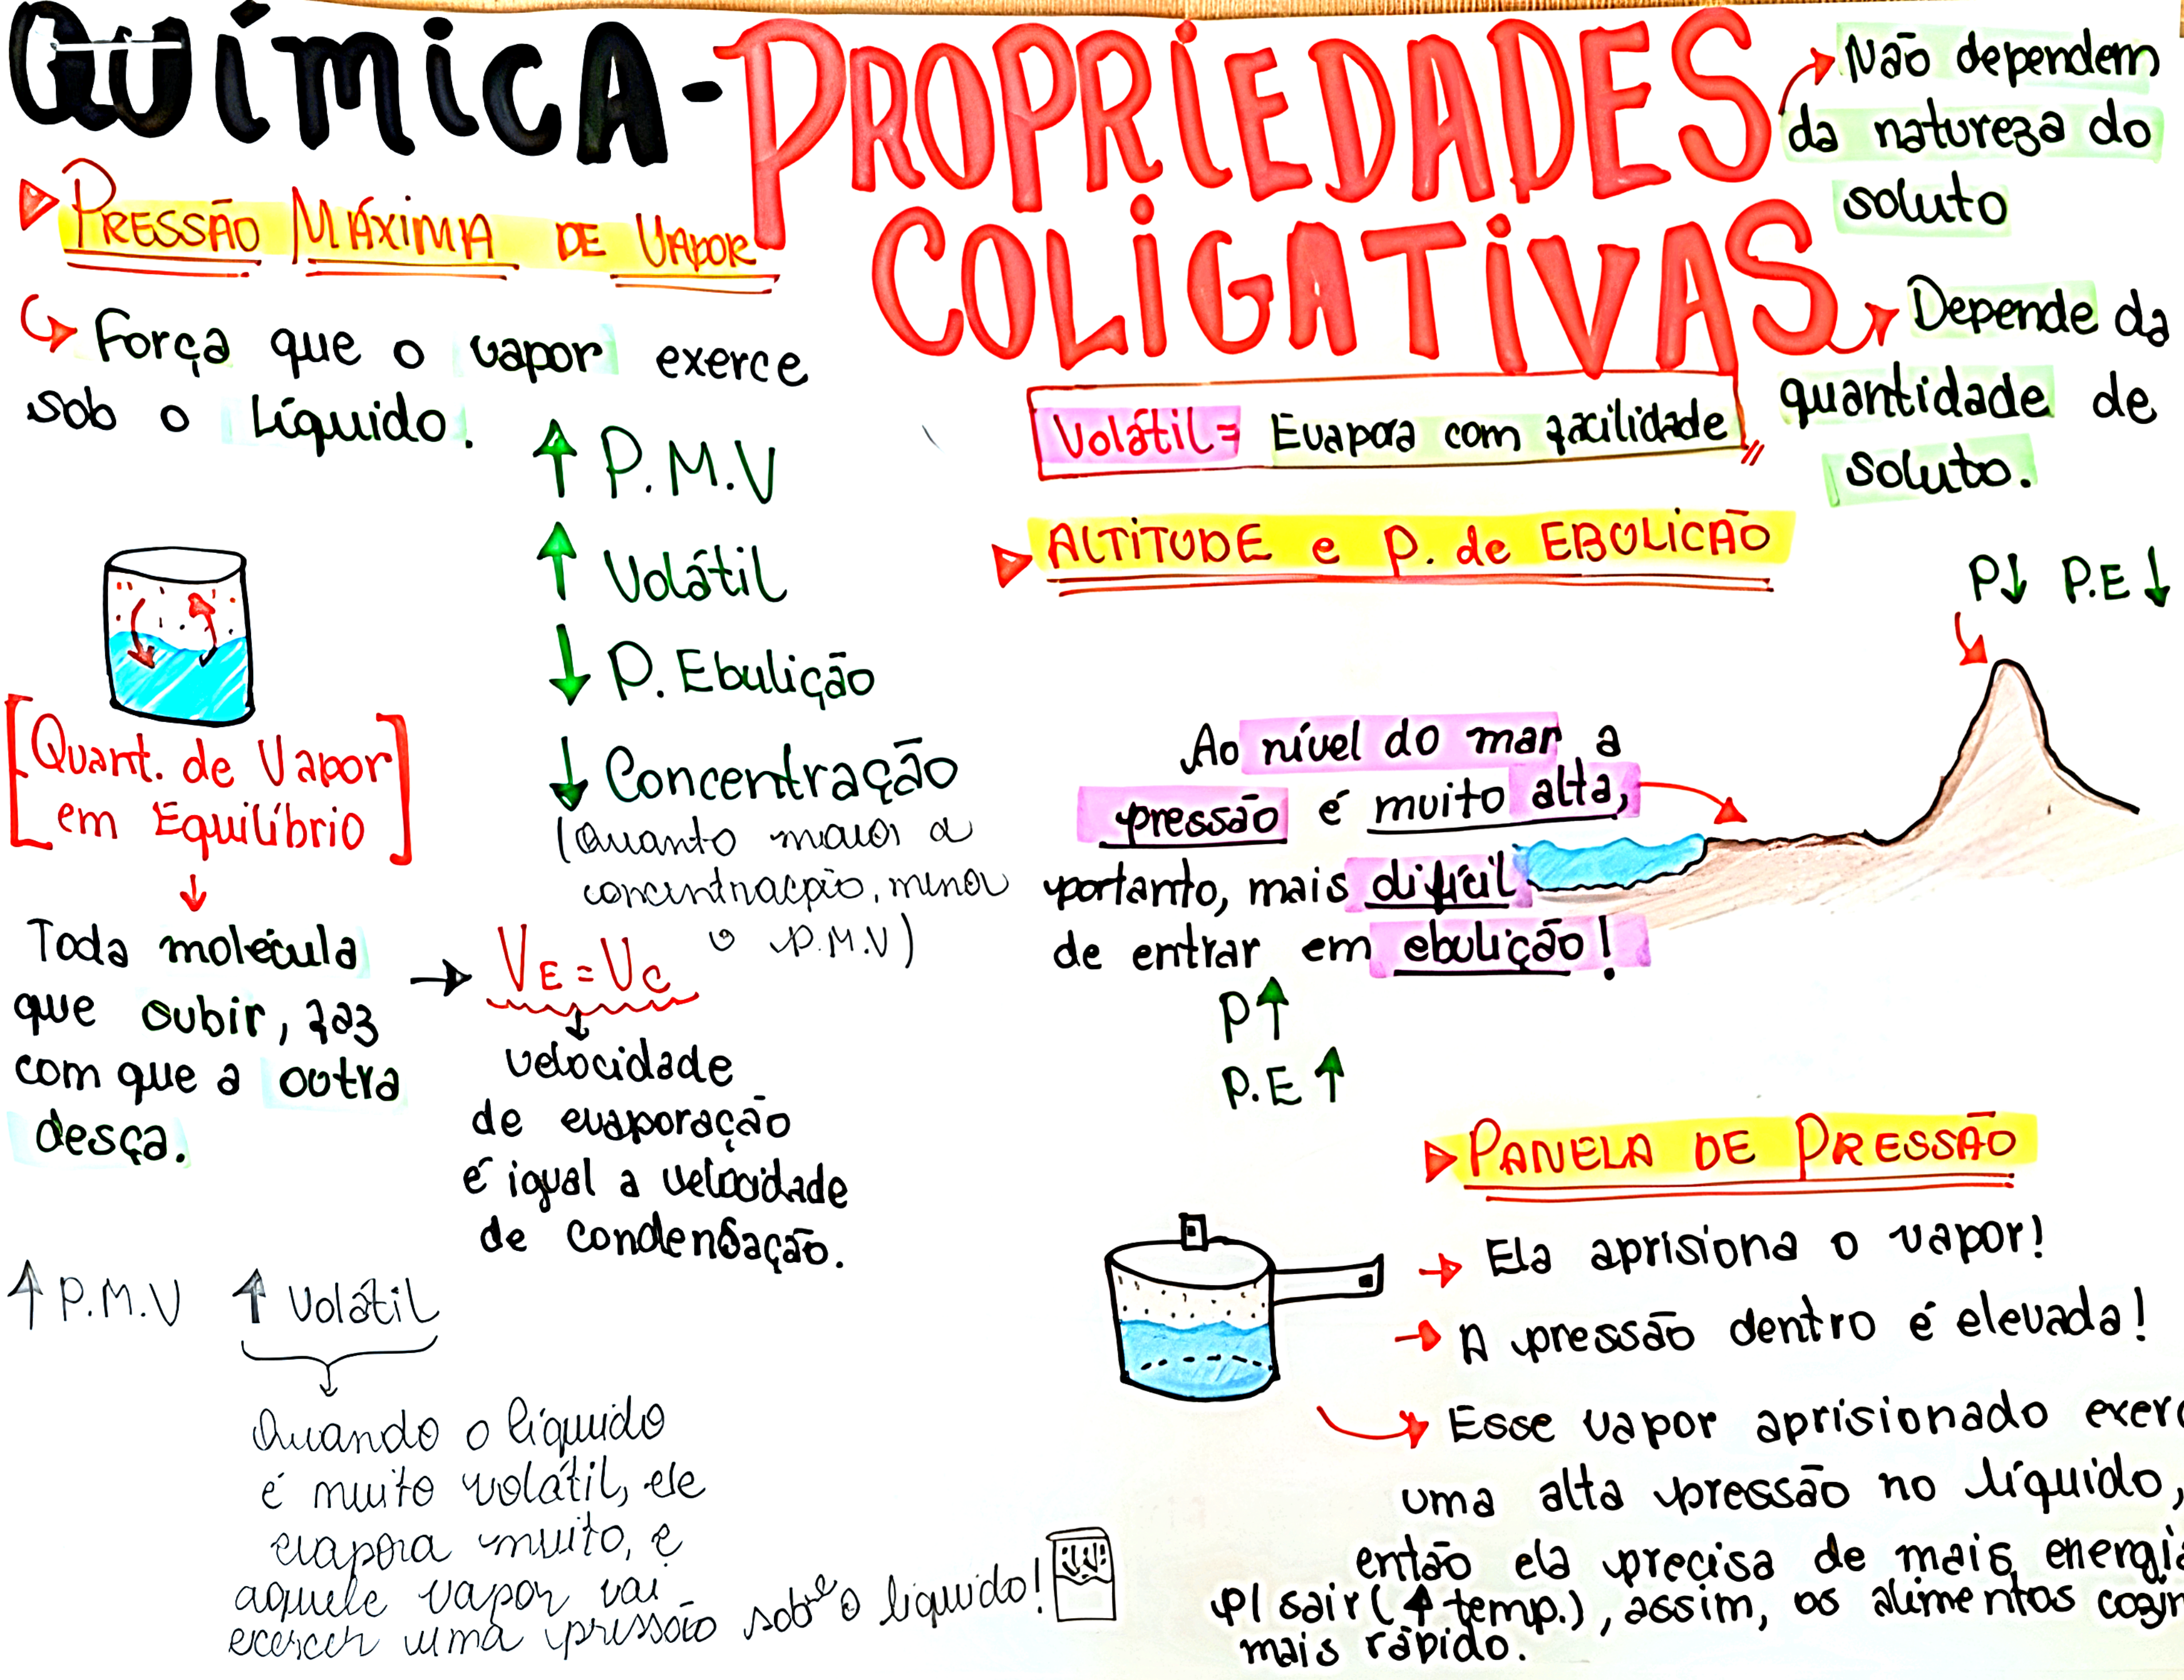 QUÍMICA - PROPRIEDADES
COLIGATIVAS
Não dependem
da natureza do
soluto
Depende da
quantidade de
soluto.
PRESSÃO MÁXIMA DE VAPOR
Força que o vapor exerce
sob o líquido.
↑ P.M.V
↑ Volátil
↓ P. Ebulição
↓ Concentração
(Quanto maior a
concentração, menor
o P.M.V)
[Quant. de Vapor
em Equilíbrio]
Toda molécula
que subir, faz
com que a outra
desça.
→ VE = VC
velocidade
de evaporação
é igual a velocidade
de condensação.
↑ P.M.V ↑ Volátil
Quando o líquido
é muito volátil, ele
evapora muito, e
aquele vapor vai
exercer uma pressão sobre o líquido!
Volátil = Evapora com facilidade
ALTITUDE e P. de EBULICÃO
P↓ P.E↓
Ao nível do mar a
pressão é muito alta,
portanto, mais difícil
de entrar em ebulição!
P↑
P.E↑
PANELA DE PRESSÃO
→ Ela aprisiona o vapor!
→ A pressão dentro é elevada!
Esse vapor aprisionado exerc
uma alta pressão no líquido,
então ela precisa de mais energia
p/ sair (↑ temp.), assim, os alimentos cozin
mais rápido.